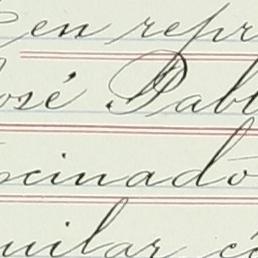 en repr
José Pabl
cinado
uilar có